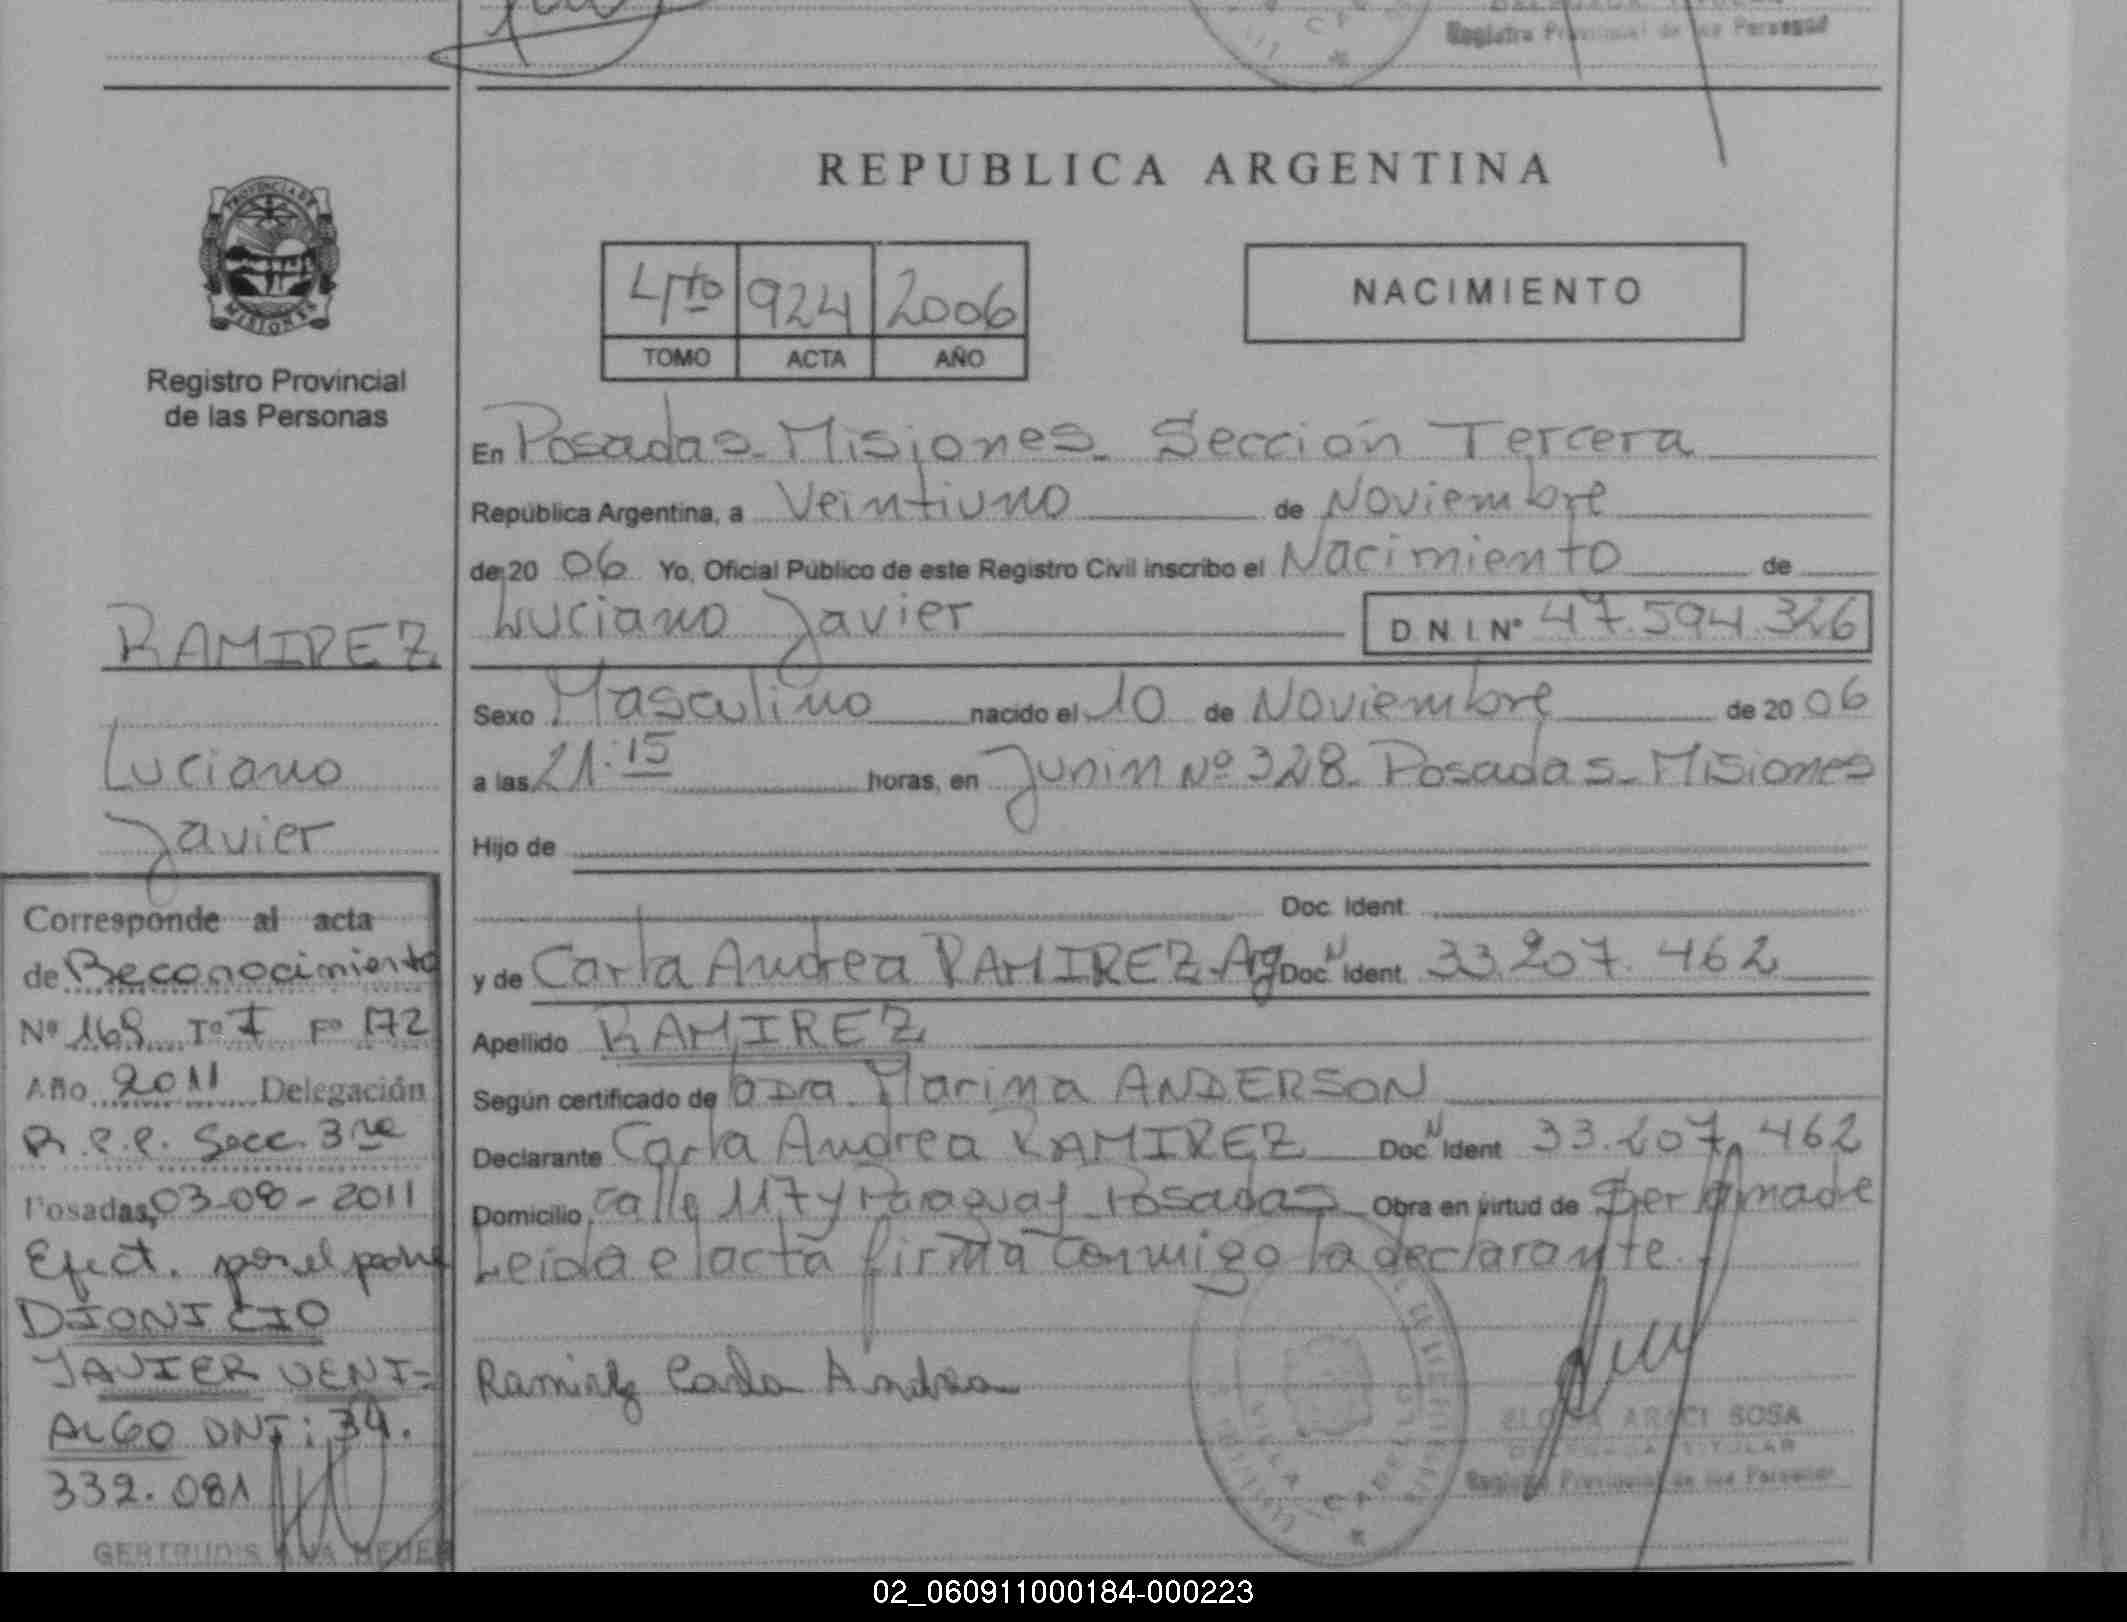 Registro Provincial de las Personas
REPUBLICA ARGENTINA
PROVINCIA DE
MISIONES
Registro Provincial
de las Personas
4to 924 2006
TOMO ACTA AÑO
NACIMIENTO
RAMIREZ
Luciano
Javier
En Posadas - Misiones - Sección Tercera
República Argentina, a Veintiuno de Noviembre
de 20 06 Yo, Oficial Público de este Registro Civil inscribo el Nacimiento de
Luciano Javier D N I Nº 47.594.326
Sexo Masculino nacido el 10 de Noviembre de 20 06
a las 21:15 horas, en Junin Nº 328 - Posadas - Misiones
Hijo de
Doc. Ident.
y de Carla Andrea RAMIREZ - Arg Doc. N Ident. 33.207.462
Apellido RAMIREZ
Según certificado de Dra. Marina ANDERSON
Declarante Carla Andrea RAMIREZ Doc. N Ident 33.207.462
Domicilio calle 117 y Paraguay Posadas Obra en virtud de Ser la madre
Leida el acta firma conmigo la declarante.
Ramirez Carla Andrea
VILLA CABELLO
SOSA
TITULAR
Registro Provincial de las Personas
Corresponde al acta
de Reconocimiento
Nº 169 Tº I Fº 172
Año 2011 Delegación
R.P.P. Secc. 3ra
Posadas, 03-08-2011
Efect. por el padre
DIONICIO
JAVIER VENI=
ALGO DNI: 34.
332.081
GERTRUDIS ANA
02_060911000184-000223